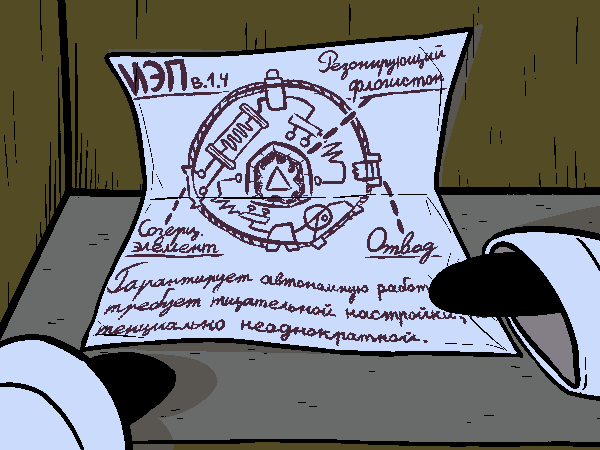 ИЭП в.1.4
Резонирующий
флогистон
Созерц.
элемент
Отвод
Гарантирует автономную работ
требует тщательной настройки,
тенциально неоднократной.